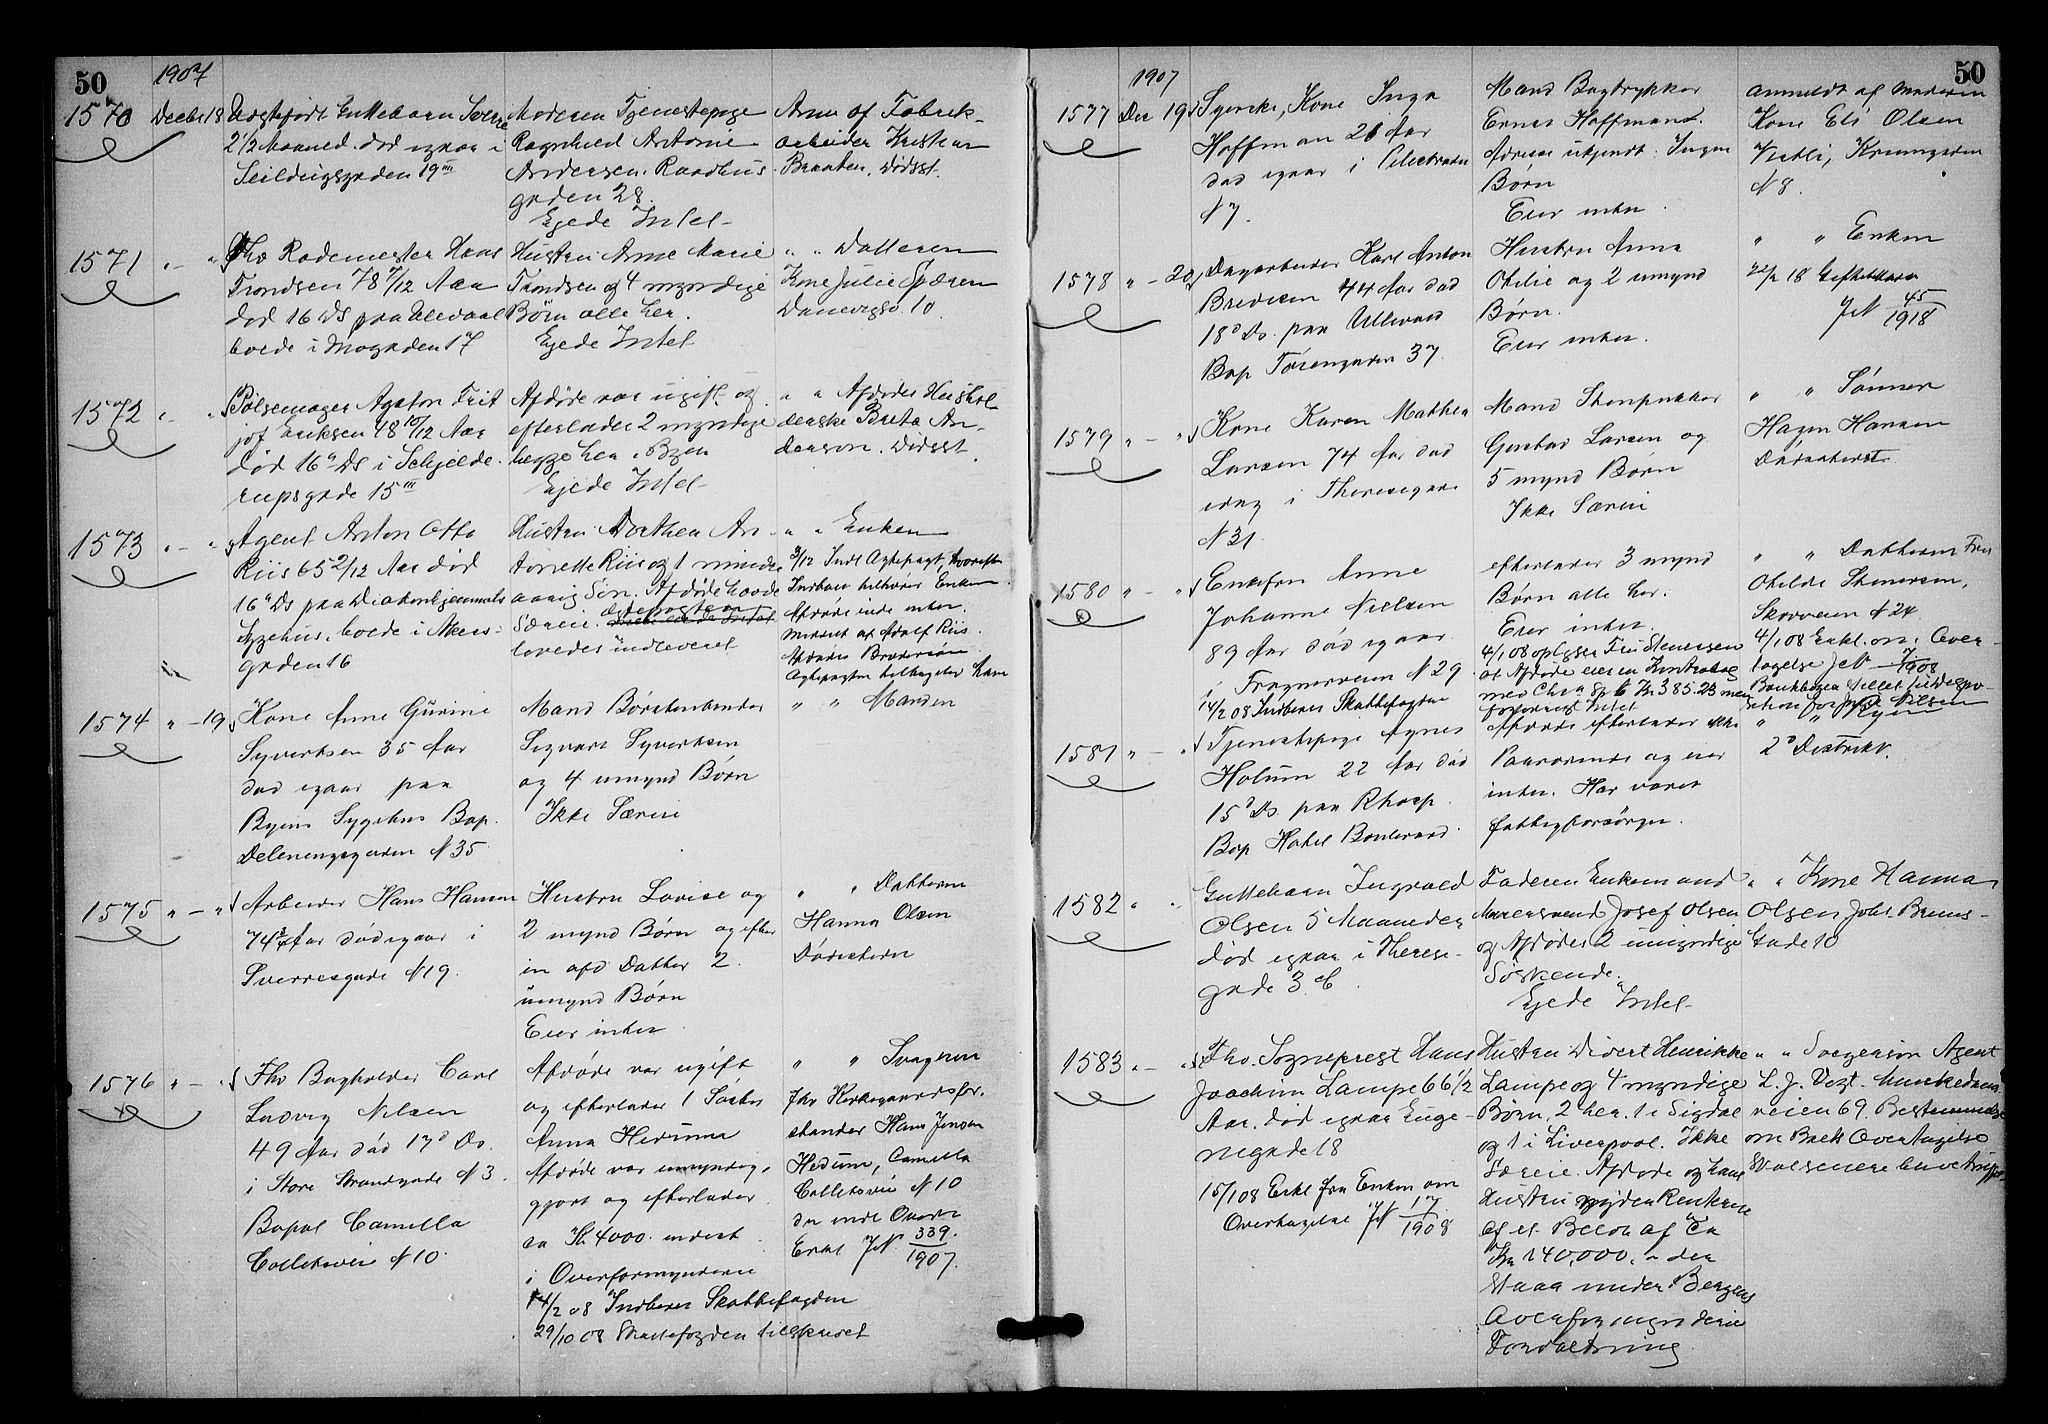 50
1907
1570 Decbr 18
Uægtefødt Guttebarn Sverre
2 1/2 Maaned. død igaar i
Seildugsgaden 19 III
Moderen Tjenestepige
Ragnhild Antonie
Andersen. Raadhus-
gaden 28.
Ejede Intet
Anm af Fabrik-
arbeider Kristian
Braaten. Dødsst.
1571 " - "
Fhv Rodemester Hans
Trondsen 78 7/12 Aar
død 16 Ds paa Ullevaal
boede i Mogaden 17
Hustru Anne Marie
Trondsen og 4 myndige
Børn alle her.
Ejede Intet
" " Datteren
Kone Julie
10
1572 "
Pølsemager Agaton Frit
jof Eriksen 48 10/12 Aar
død 16 Ds i Schjelde-
rupsgade 15 III
Afdøde var ugift og
efterlader 2 myndige
begge her i Byen
Ejede Intet
" " Afdødes Hushol-
derske Berta An-
derson. Dødsst.
1573 " - "
Agent Anton Otto
Riis 65 2/12 Aar død
16 Ds paa Diakonhjemmets
Sygehus. boede i Akers-
gaden 16
Hustru Dorthea An-
tonette Riis og 1 minder-
aarig Søn. Afdøde havde
Særeie. Ægtepagten
lovedes indleveret
" " Enken
3/12 Indl Ægtepagt, hvorefter
Indboet tilhører Enken.
Afdøde eiede inten.
Meddelt af Adolf Riis
Afdødes Brodersøn
Ægtepagten tilbagelev ham
1574 " - 19
Kone Anne Gurine
Syvertsen 35 Aar
død igaar paa
Byens Sygehus Bop.
Deleneng​sgaden N 35
Mand Børstenbinder
Sigvart Syvertsen
og 4 umynd Børn
Ikke Særeie
" " Manden
1575 " - "
Arbeider Hans Hansen
74 Aar død igaar i
Sverresgade N 19.
Hustru Lovise og
2 mynd Børn og efter
en afd Datter 2
umynd Børn
Eier inten
" " Datteren
Hanna Olsen
Dødsstedet
1576 " - "
Fhv Bogholder Carl
Ludvig Nilsen
49 Aar død 17d Ds.
i Store Strandgade N 3.
Bopæl Camilla
Colletsvei N 10
Afdøde var ugift
og efterlader 1 Søster
Anna Hedum
Afdøde var umyndig-
gjort og efterlader
ca Kr. 4000. indest
i Overformynderiet
14/2 08 Indberet Skattefogden
29/10 08 Skattefogden tilskrevet
" " Svogeren
fhv Kirkegaardsfor-
stander Hans Jensen
Hedum, Camilla
Colletsvei N 10
der indl Overt
Erkl JN 339/1907.
50
1907
1577 Dec 19
Syerske, Kone Inga
Hoffman 21 Aar
død igaar i
N 7.
Mand Bogtrykker
Ernst Hoffmann.
Adresse ukjendt. Ingen
Børn
Eier inten.
anmeldt af Moderen
Kone Eli Olsen
N 8.
1578 " - 20
Dagarbeider Karl Anton
Bredesen 44 Aar død
18d Ds. paa Ullevaal
Bop Tøiengaden 37
Hustru Anna
Otilie og 2 umynd
Børn.
Eier inten.
" " Enken
22/2 18 Skifteattest
JN 45/1918
1579 " - "
Kone Karen Mathea
Larsen 74 Aar død
idag i Theresegade
N 31
Mand Stenhukker
Gustav Larsen og
5 mynd Børn
Ikke Særeie
" " Sønnen
Hagen Hansen
Dødsstedet
1580 " - "
Enkefru Anne
Johanne Nielsen
89 Aar død igaar
i Frognerveien N 29
14/2 08 Indberet Skattefogden
efterlader 3 mynd
Børn alle her.
Eier inten.
4/1 08 oplyser Fru Stenersen
at Afdøde eier en Kontrabog
med Chr a Sp b Kr 385.23 men
forøvrigt Intet
" " Datteren Fru
Otilde Stenersen,
Skovveien N 24
4/1 08 Erkl. om Over-
tagelse JN 7/1908
Nilsen
1581 " - "
Tjenestepige Agnes
Holum 22 Aar død
15d Ds. paa Rhosp.
Bop Hotel Boulevard.
Afdøde efterlader ikke
Paarørende og eier
inten. Har været
fattigforsørget.
" "
2d Distrikt.
1582 " "
Guttebarn Ingvald
Olsen 5 Maaneder
død igaar i Therese-
gade 3 C.
Faderen Enkemand
Murersvend Josef Olsen
og Afdødes 2 umyndige
Søskende.
Ejede Intet
" " Kone Hanna
Olsen Joh. Bruns-
Gade 10
1583 " - "
Fhv. Sogneprest Hans
Joachim Lampe 66 1/2
Aar. død igaar Euge-
niegade 18
15/1 08 Erkl fra Enken om
Overtagelse JN 17/1908
Hustru Divert Henrikke
Lampe og 4 myndige
Børn, 2 her. 1 i Sigdal
og 1 i Liverpool. Ikke
Særeie. Afdøde og hans
Hustru nyder Renterne
af et Beløb af Ca
Kr 140,000. - der
staar under Bergens
Overformynderie
Forvaltning
" " Svigersøn Agent
L. J. Vogt. Munkedams-
veien 69. Bestemmelse
om Boets Overtagelse
vil senere blive truffet